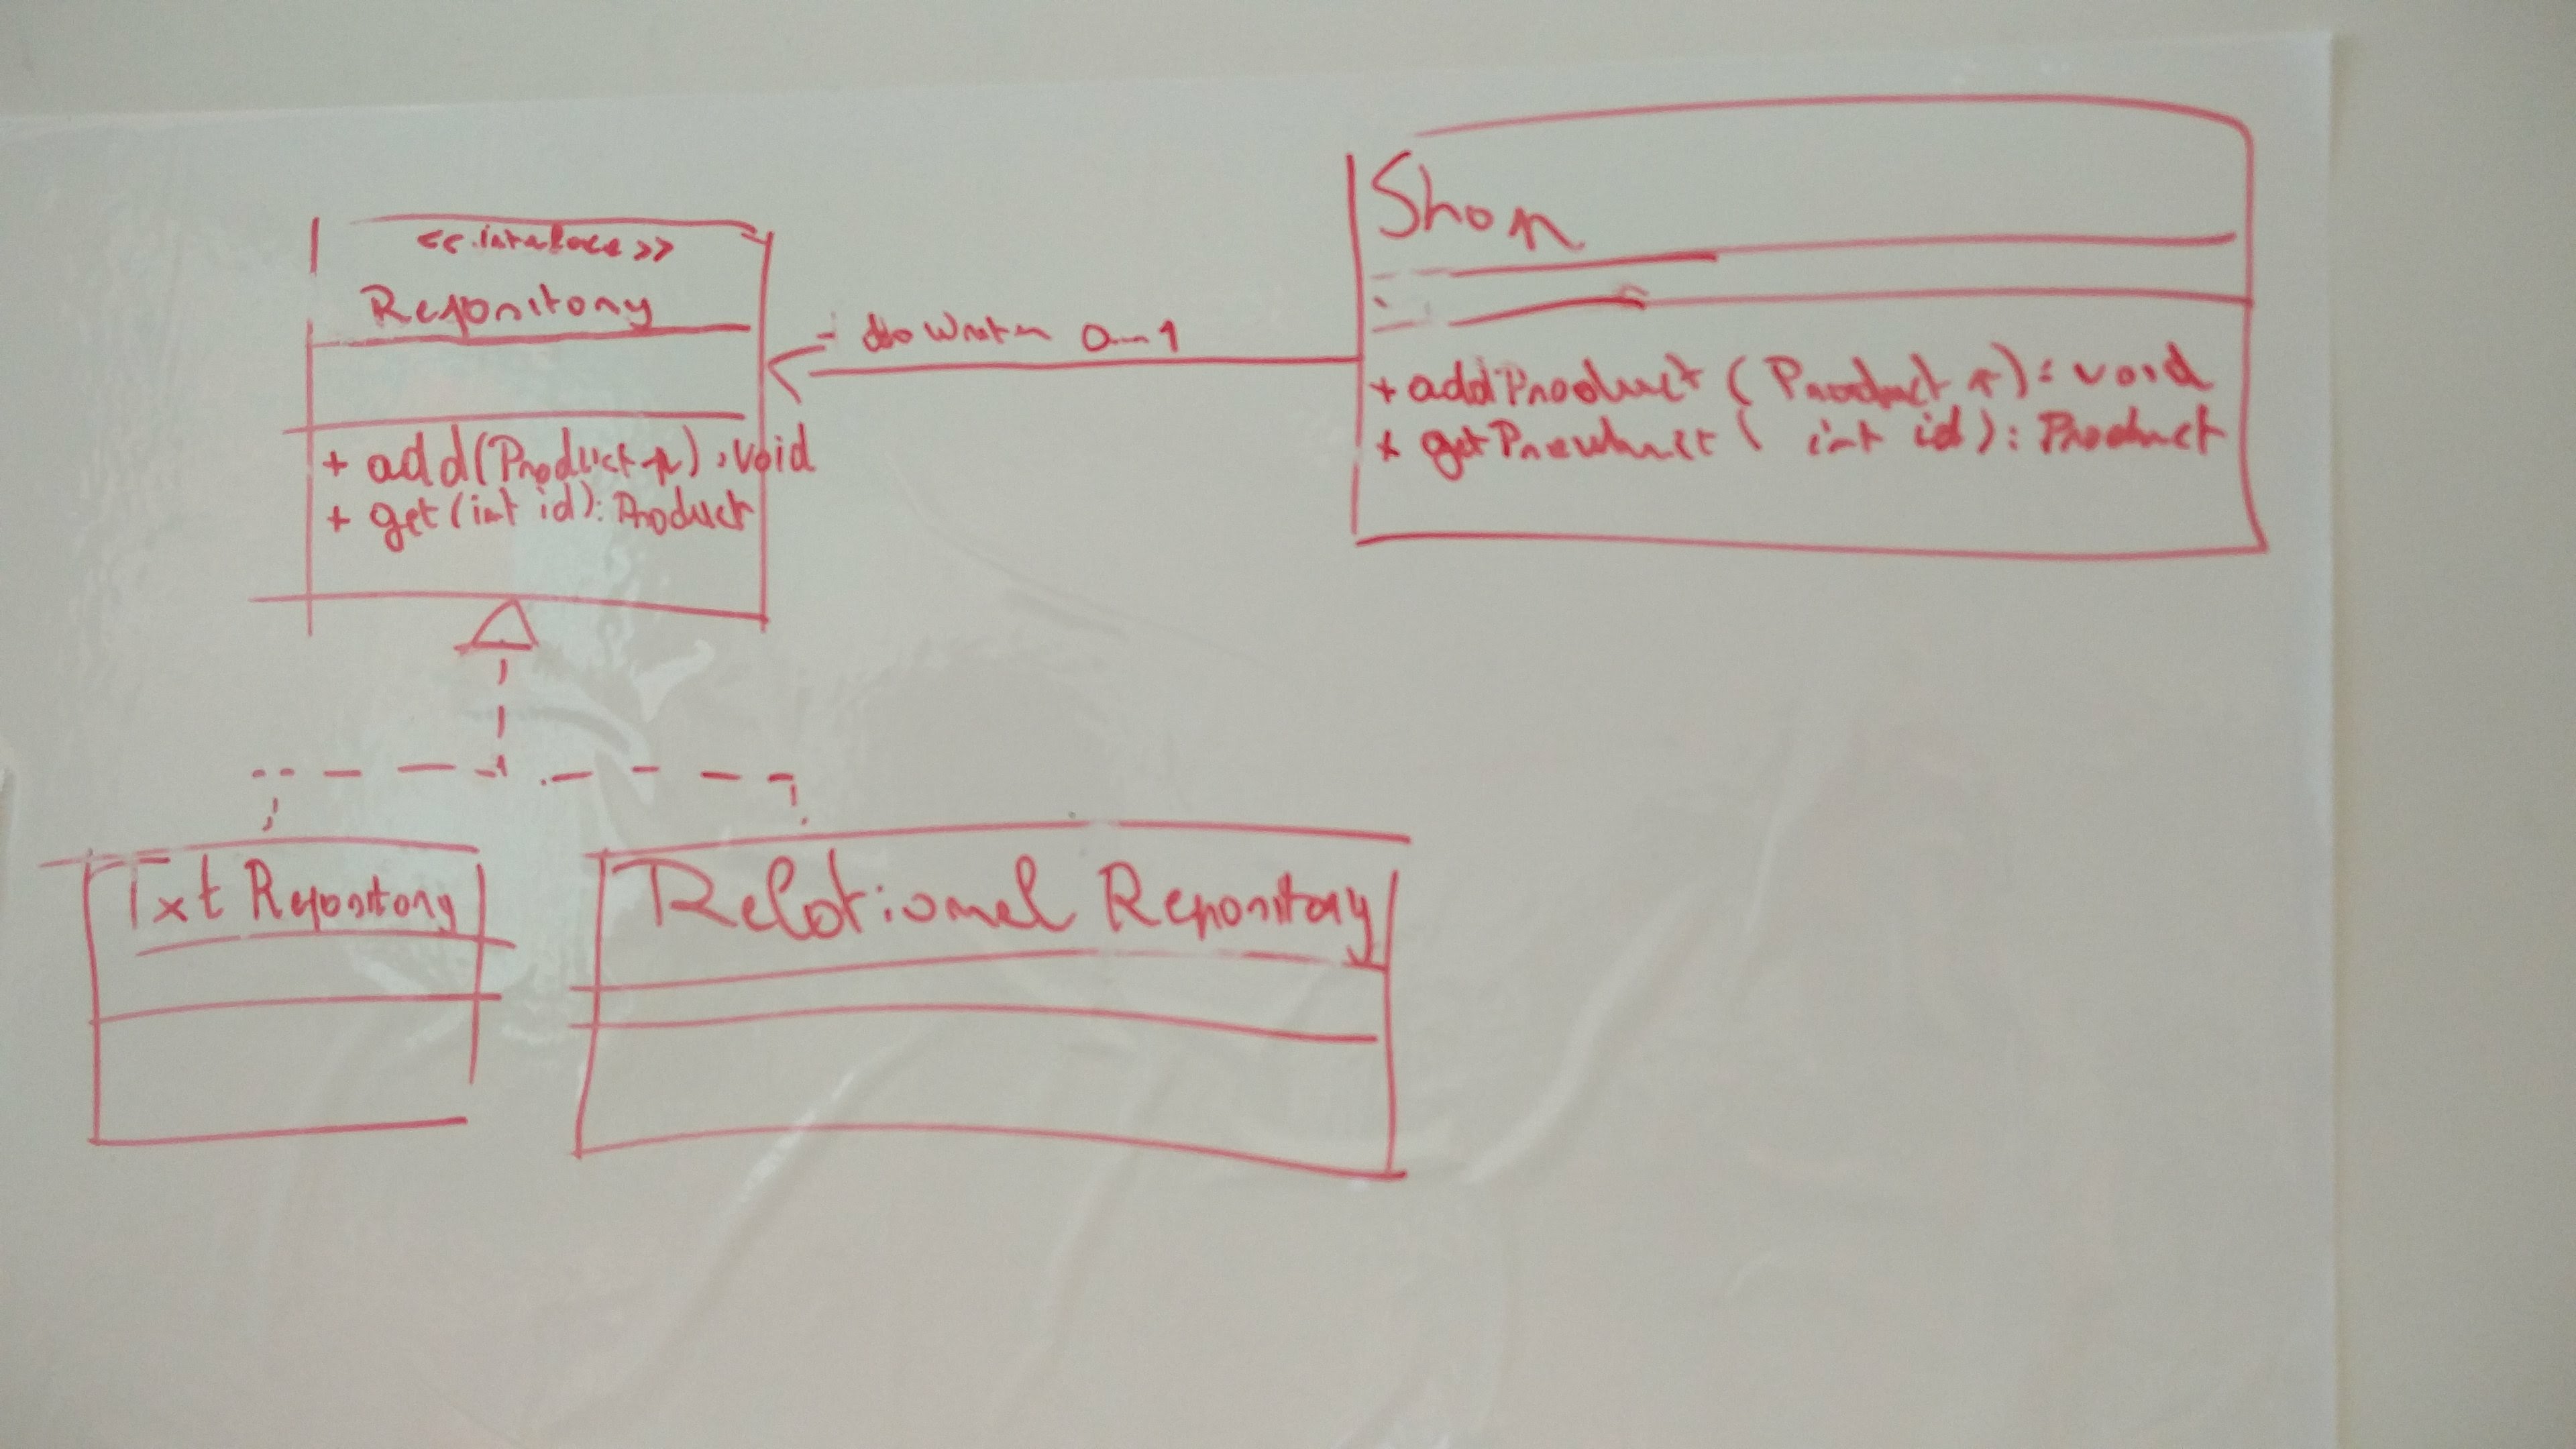 <<interface>>
Repository
+ add(Product p): void
+ get(int id): Product
- 0..1
Shop
+ addProduct (Product p): void
+ getProduct (int id): Product
Txt Repository
Relational Repository